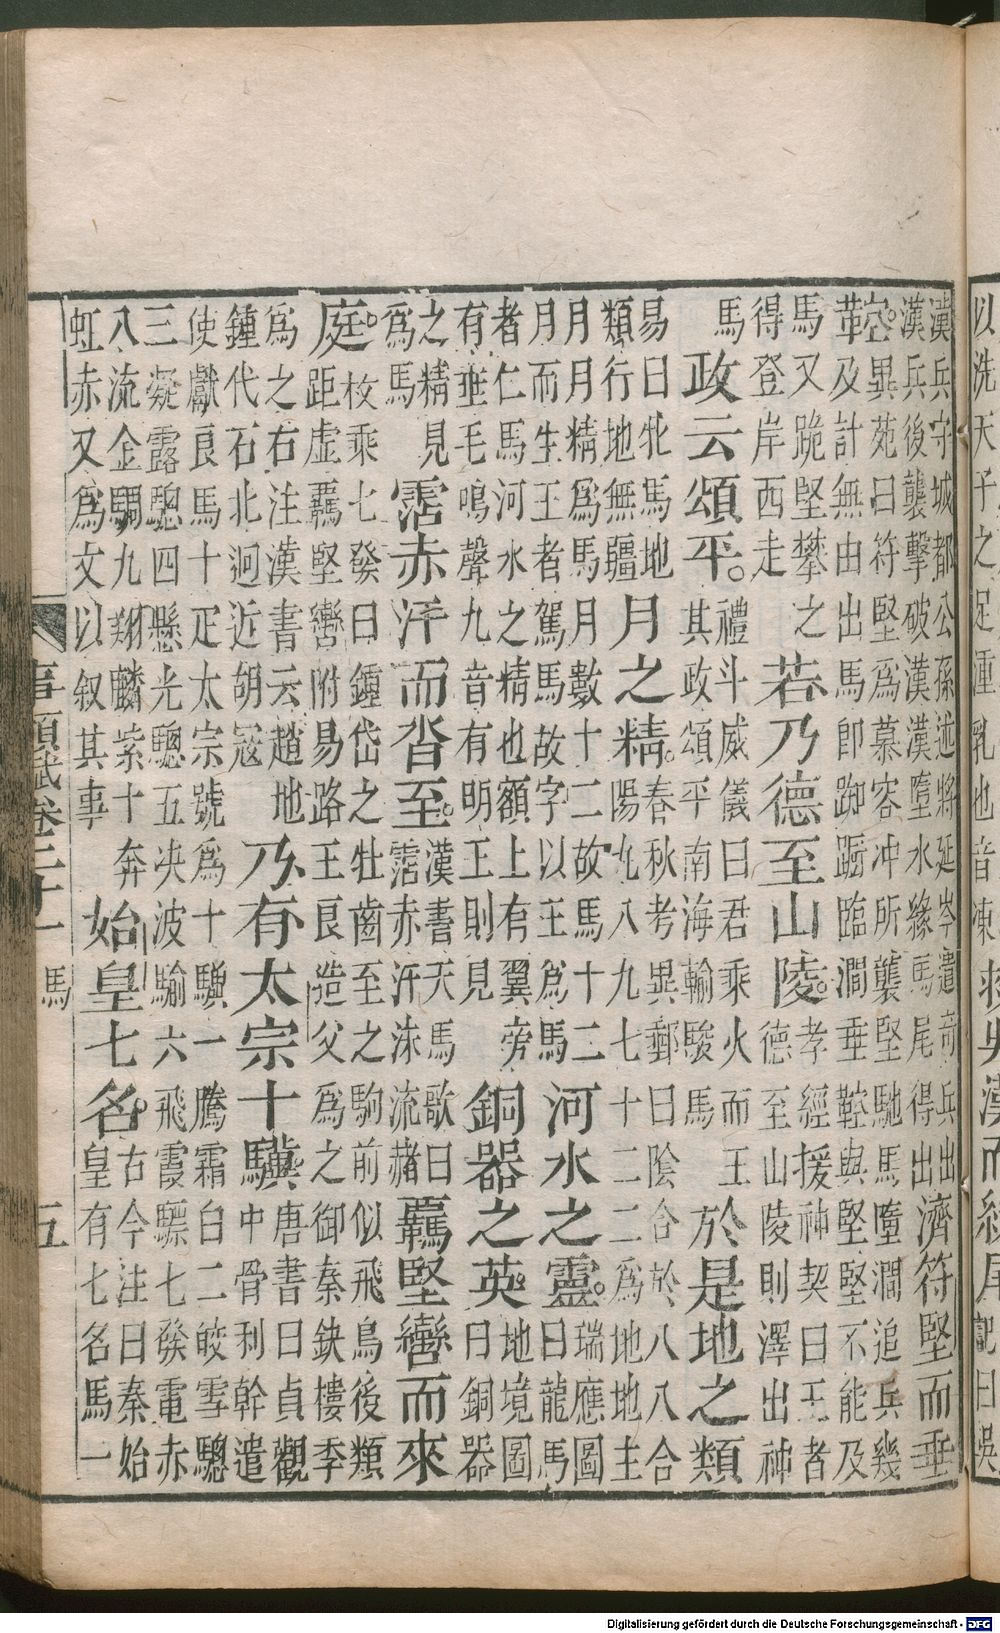 以洗天子之足湩乳也音凍
漢兵守城都公孫述將延岑遣奇兵出
漢兵後襲擊破漢漢墮水緣馬尾得出
濟符堅而垂
鞚。
異苑曰符堅為慕容冲所襲堅馳馬墮澗追兵幾
及計無由出馬即踟躕臨澗垂鞚與堅堅不能及
馬又跪堅攀之
得登岸西走
若乃德至山陵。
孝經援神契曰王者
德至山陵則澤出神
馬
政云頌平。
禮斗威儀曰君乘火而王
其政頌平南海輸駿馬
於是地之類
易曰牝馬地
類行地無疆
月之精。
春秋考異郵曰陰合於八八合
陽九八九七十二二為地地主
月月精為馬月數十二故馬十二
月而生王者駕馬故字以王為馬
河水之靈。
瑞應圖
曰龍馬
者仁馬河水之精也額上有翼旁
有垂毛鳴聲九音有明王則見
銅器之英。
地境圖
曰銅器
之精見
為馬
霑赤汗而沓至。
漢書天馬歌曰
霑赤汗沫流赭
羈堅轡而來
庭。
枚乘七發曰鍾岱之牡齒至之駒前似飛鳥後類
距虛羈堅轡附易路王良造父為之御秦缺樓季
為之右注漢書云趙地
鍾代石北迥近胡寇
乃有太宗十驥
唐書曰貞觀
中骨利幹遣
使獻良馬十疋太宗號為十驥一騰霜白二皎雪驄
三凝露驄四懸光驄五决波騟六飛霞驃七發電赤
八流金騧九翔麟紫十奔
虹赤又為文以叙其事
始皇七名。
古今注曰秦始
皇有七名馬一
事類賦卷二十一 馬 五
Digitalisierung gefördert durch die Deutsche Forschungsgemeinschaft - DFG